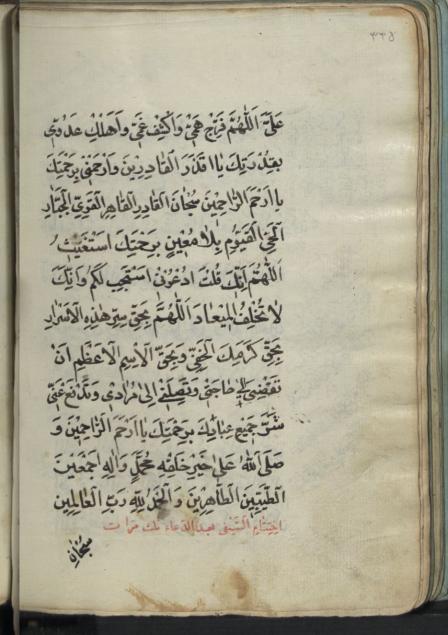 ٣٣٤
عَلَيَّ اَللّٰهُمَّ فَرِّجْ هَمّی وَاكْشِفْ غَمّی وَاَهْلِكْ عَدُوّی
بِقُدْرَتِكَ يٰا اَقْدَرَ الْقٰادِرينَ وَارْحَمْنی بِرَحْمَتِكَ
يٰا اَرْحَمَ الرّٰاحِمينَ سُبْحٰانَ الْقٰادِرِ الْقٰاهِرِ الْقَوِیِّ الْجَبّٰارِ
الْحَیِّ الْقَيُّومِ بِلٰا مُعينٍ بِرَحْمَتِكَ اَسْتَغيثُ
اَللّٰهُمَّ اِنَّكَ قُلْتَ ادْعُونی اَسْتَجِبْ لَكُمْ وَاِنَّكَ
لٰا تُخْلِفُ الْميعٰادَ اَللّٰهُمَّ بِحَقِّ سِرِّ هٰذِهِ الْاَسْرٰارِ
بِحَقِّ كَرَمِكَ الْخَفِیِّ وَبِحَقِّ الْاِسْمِ الْاَعْظَمِ اَنْ
تَقْضِیَ لی حٰاجَتی وَتُصِلَنی اِلیٰ مُرٰادی وَتَدْفَعَ عَنّی
شَرَّ جَميعِ عِبٰادِكَ بِرَحْمَتِكَ يٰا اَرْحَمَ الرّٰاحِمينَ وَ
صَلَّی اللّٰهُ عَلیٰ خَيْرِ خَلْقِهِ مُحَمَّدٍ وَاٰلِهِ اَجْمَعينَ
الطَّيِّبينَ الطّٰاهِرينَ وَالْحَمْدُ لِلّٰهِ رَبِّ الْعٰالَمينَ
اختتام السّيفی بعد الدّعاء ثلث مرات
سبحان